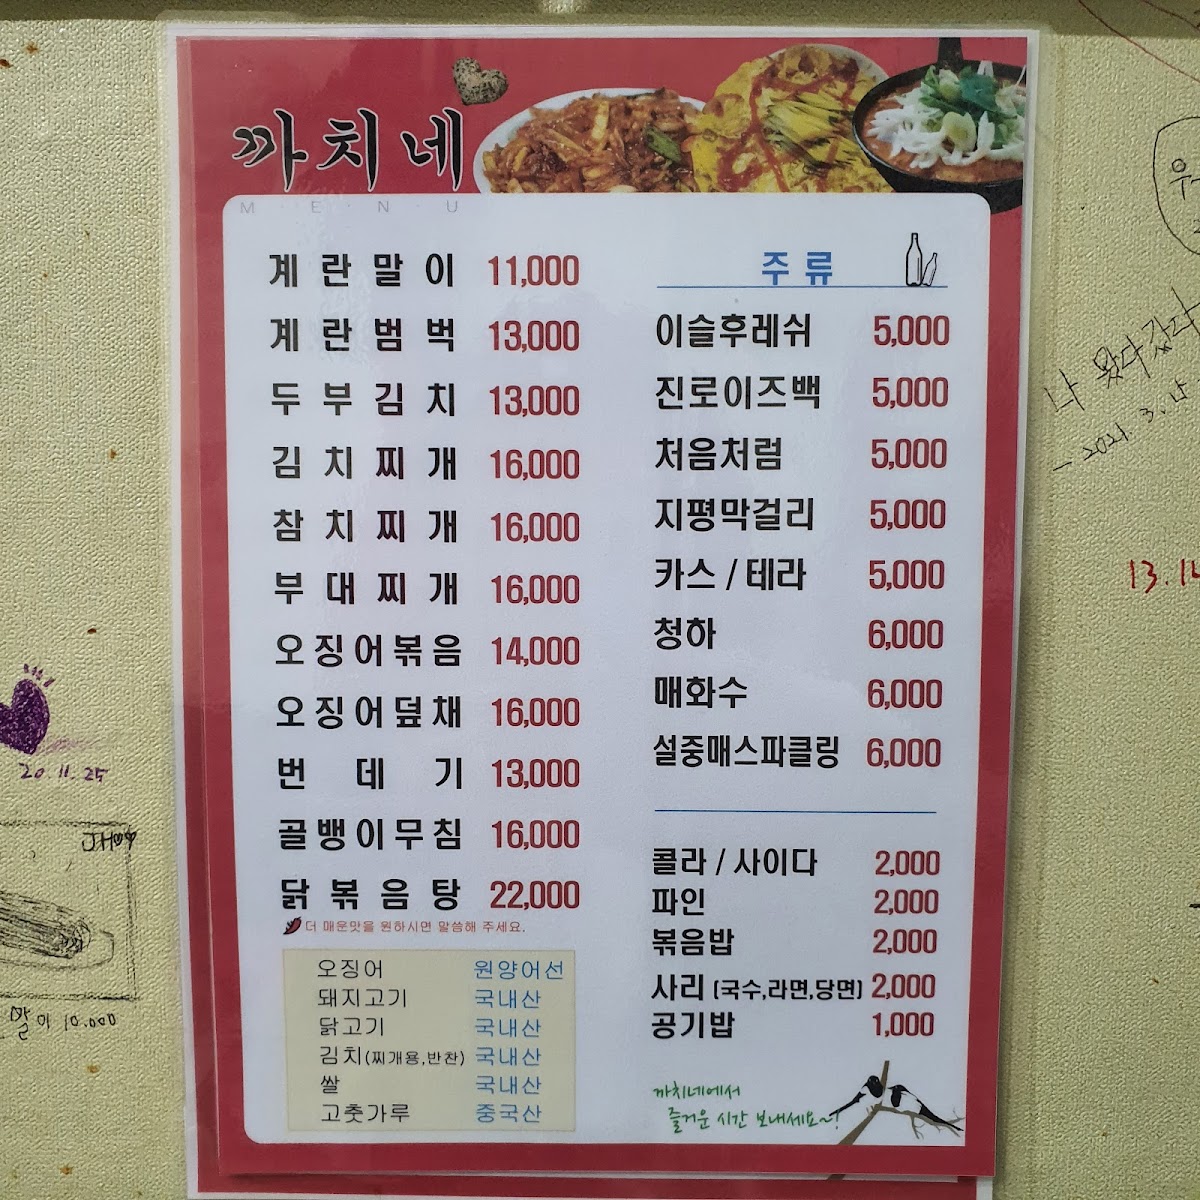 까치네
MENU
계란말이 11,000
계란범벅 13,000
두부김치 13,000
김치찌개 16,000
참치찌개 16,000
부대찌개 16,000
오징어볶음 14,000
오징어덮채 16,000
번데기 13,000
골뱅이무침 16,000
닭볶음탕 22,000
더 매운맛을 원하시면 말씀해 주세요.
오징어 원양어선
돼지고기 국내산
닭고기 국내산
김치(찌개용,반찬) 국내산
쌀 국내산
고춧가루 중국산
주류
이슬후레쉬 5,000
진로이즈백 5,000
처음처럼 5,000
지평막걸리 5,000
카스 / 테라 5,000
청하 6,000
매화수 6,000
설중매스파클링 6,000
콜라 / 사이다 2,000
파인 2,000
볶음밥 2,000
사리 (국수,라면,당면) 2,000
공기밥 1,000
까치네에서
즐거운 시간 보내세요~!
나 왔다갔다
- 2021. 3. 15
13.14
20.11.25
JH
말이 10.000